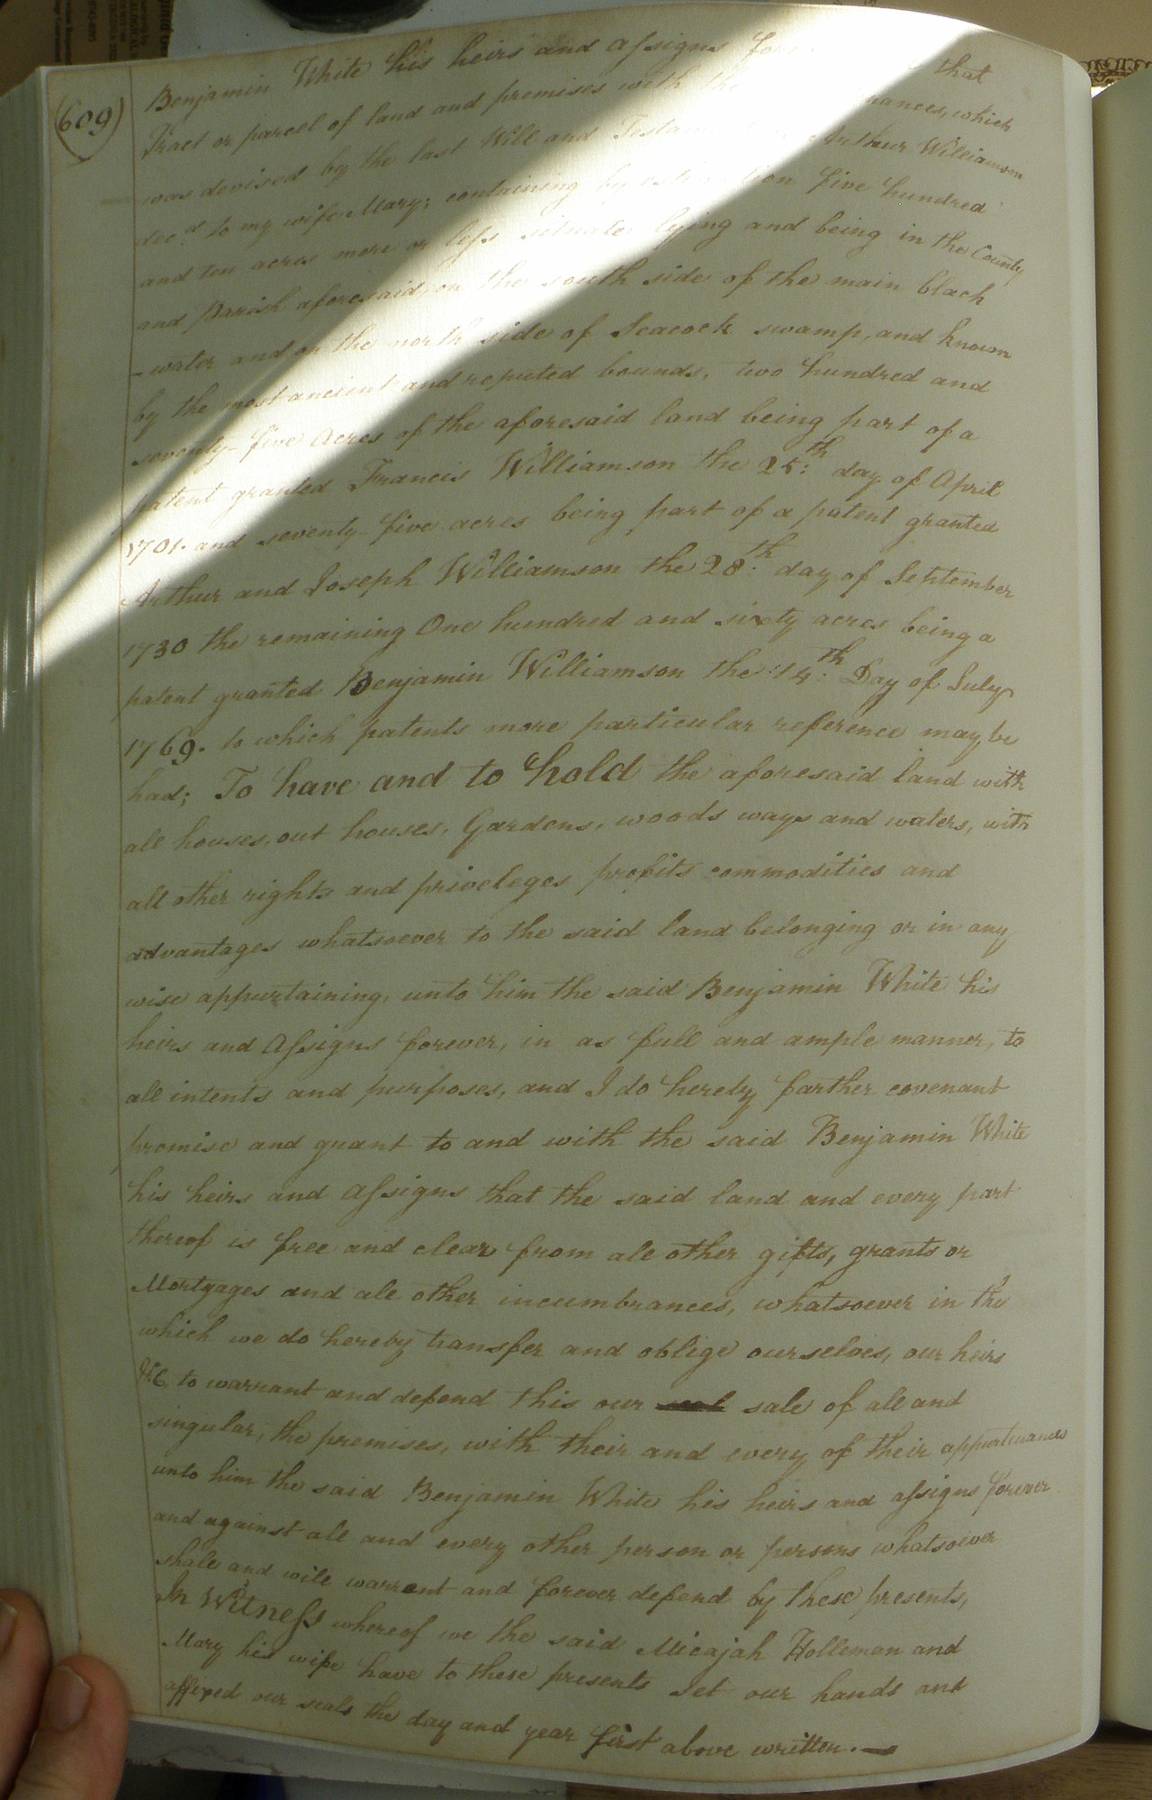 (609)
Benjamin White his heirs and assigns that
Tract or parcel of land and premises with the which
was devised by the last Will and Arthur Williamson
dec.d to my wife Mary; containing by five hundred
and ten acres more or less situate lying and being in the County
and Parish aforesaid, on the south side of the main black
-water and on the north side of Seacock swamp, and known
by the most ancient and reputed bounds, two hundred and
seventy-five Acres of the aforesaid land being part of a
patent granted Francis Williamson the 25:th day of April
1701. and seventy-five acres being part of a patent granted
Arthur and Joseph Williamson the 28:th day of September
1730 the remaining One hundred and sixty acres being a
patent granted Benjamin Williamson the 14:th Day of July
1769. to which patents more particular reference may be
had; To have and to hold the aforesaid land with
all houses, out houses, Gardens, woods ways and waters, with
all other rights and priveleges profits commodities and
advantages whatsoever to the said land belonging or in any
wise appurtaining, unto him the said Benjamin White his
heirs and Assigns forever, in as full and ample manner, to
all intents and purposes, and I do hereby farther covenant
promise and grant to and with the said Benjamin White
his heirs and assigns that the said land and every part
thereof is free and clear from all other gifts, grants or
Mortgages and all other incumbrances, whatsoever in the
which we do hereby transfer and oblige ourselves, our heirs
&c to warrant and defend this our sale of all and
singular, the premises, with their and every of their appurtenances
unto him the said Benjamin White his heirs and assigns forever
and against all and every other person or persons whatsoever
shall and will warrent and forever defend by these presents,
In Witness whereof we the said Micajah Holleman and
Mary his wife have to these presents set our hands and
affixed our seals the day and year first above written.—